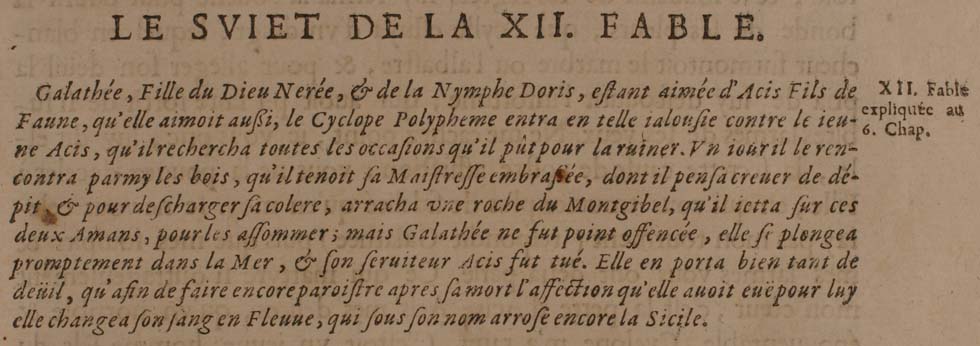 LE SVIET DE LA XII. FABLE.
Galathée, Fille du Dieu Nerée, & de la Nymphe Doris, eſtant aimée d'Acis Fils de
Faune, qu'elle aimoit auſſi, le Cyclope Polypheme entra en telle ialouſie contre le ieu-
ne Acis, qu'il rechercha toutes les occaſions qu'il pût pour la ruiner. Vn iour il le ren-
contra parmy les bois, qu'il tenoit ſa Maiſtreſſe embraſſée, dont il penſa creuer de dé-
pit, & pour deſcharger ſa colere, arracha vne roche du Montgibel, qu'il ietta ſur ces
deux Amans, pour les aſſommer; mais Galathée ne fut point offencée, elle ſe plongea
promptement dans la Mer, & ſon ſeruiteur Acis fut tué. Elle en porta bien tant de
deüil, qu'afin de faire encore paroiſtre apres ſa mort l'affection qu'elle auoit euë pour luy
elle changea ſon ſang en Fleuue, qui ſous ſon nom arroſe encore la Sicile.
XII. Fable
expliquée au
6. Chap.